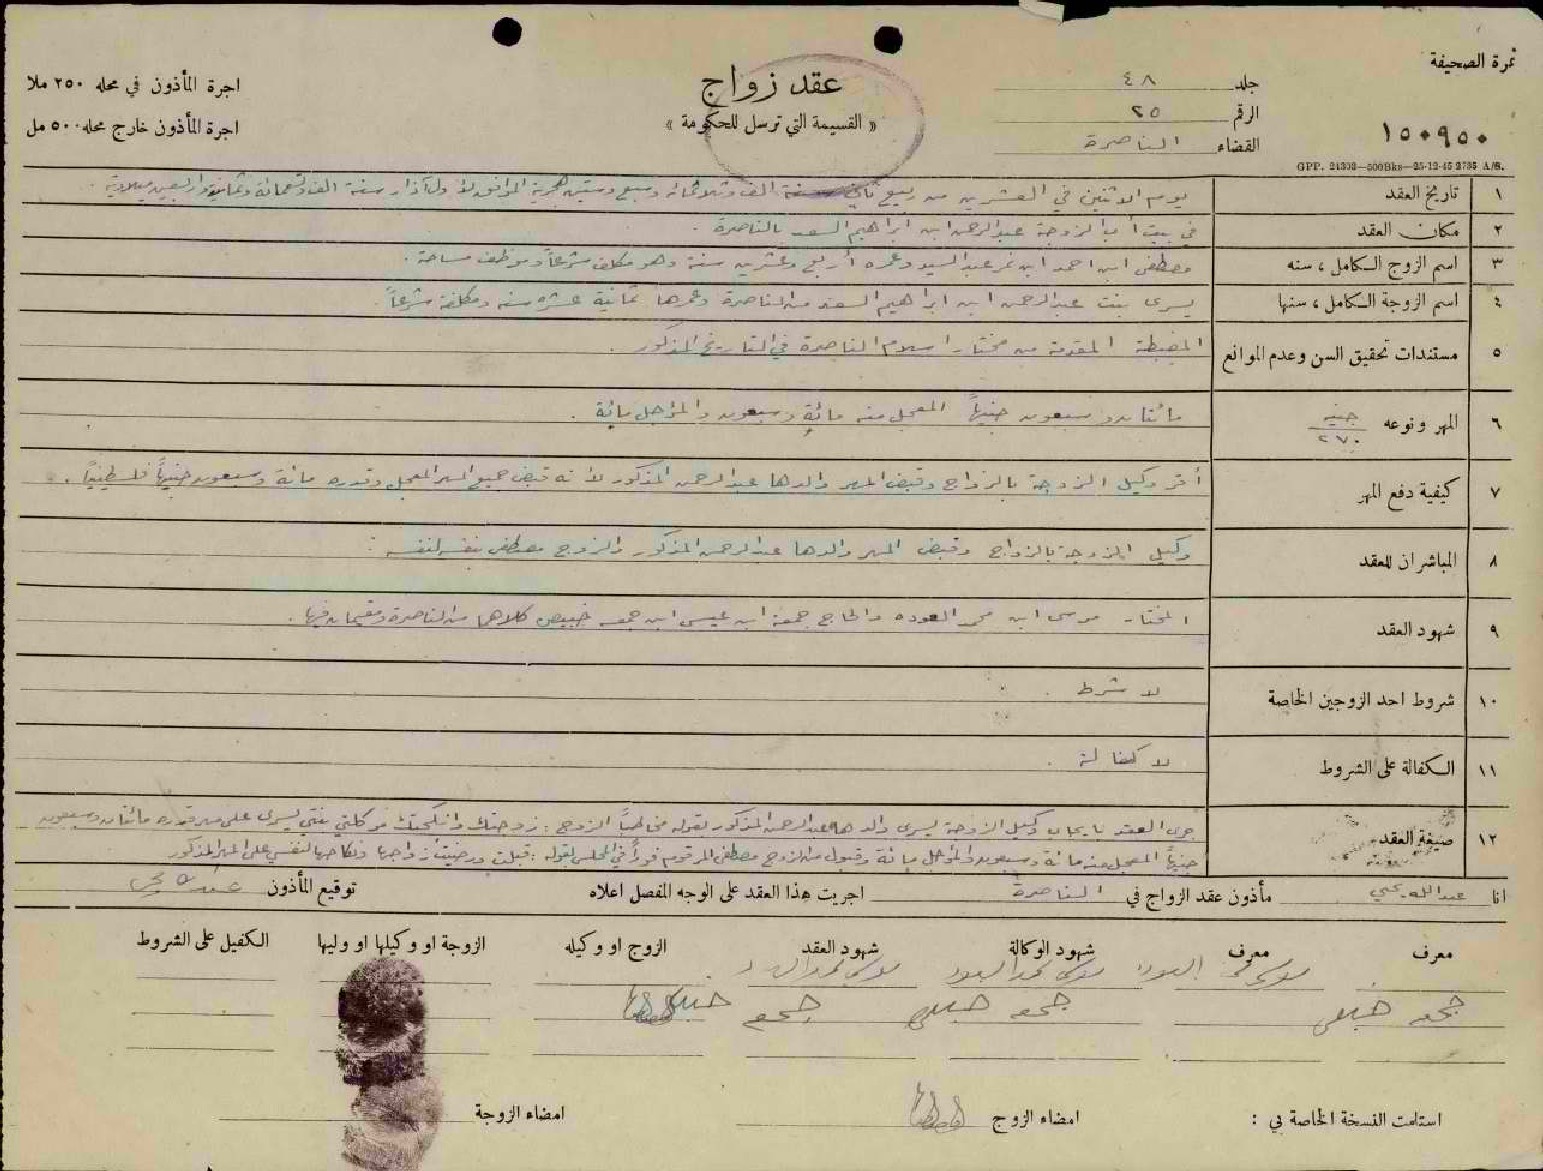 نمرة الصحيفة
١٥٠٩٥٠
GPP. 24303—500Bks—25-12-45 2735 A/S.
جلد ٤٨
الرقم ٢٥
القضاء الناصرة
عقد زواج
« القسيمة التي ترسل للحكومة »
اجرة المأذون في محله ٢٥٠ ملا
اجرة المأذون خارج محله ٥٠٠ مل
١ تاريخ العقد يوم الاثنين في العشرين من ربيع ثاني سنة الف وثلاثمائه وسبع وستين هجرية الموافق لاول آذار سنة الف وتسعمائة وثمانية واربعين ميلادية .
٢ مكان العقد في بيت أب الزوجة عبد الرحمن ابن ابراهيم السعد بالناصرة .
٣ اسم الزوج الكامل ، سنه مصطفى ابن احمد ابن نمر عبد السيد وعمره أربع وعشرين سنة وهو مكلف شرعاً وموظف مساحة .
٤ اسم الزوجة الكامل ، سنها يسرى بنت عبد الرحمن ابن ابراهيم السعد من الناصرة وعمرها ثمانية عشره سنه ومكلفة شرعاً .
٥ مستندات تحقيق السن وعدم الموانع المضبطة المقدمة من مختار اسلام الناصرة في التاريخ المذكور .
٦ المهر ونوعه جنيه ٢٧٠ مائتان وسبعون جنيهاً المعجل منه مائة وسبعون والمؤجل مائة .
٧ كيفية دفع المهر أقر وكيل الزوجة بالزواج وقبض المهر والدها عبد الرحمن المذكور لأنه قبض جميع المهر المعجل وقدره مائة وسبعون جنيهاً فلسطينياً .
٨ المباشران للعقد وكيل الزوجة بالزواج وقبض المهر والدها عبد الرحمن المذكور والزوج مصطفى بنفسه لنفسه .
٩ شهود العقد المختار موسى ابن محمد العوده والحاج جمعة ابن عيسى ابن جمعه كلاهما من الناصرة ومقيمان فيها .
١٠ شروط احد الزوجين الخاصة لا شرط .
١١ الكفالة على الشروط لا كفالة .
١٢ صيغة العقد جرى العقد بايجاب وكيل الزوجة يسرى والدها عبد الرحمن المذكور بقوله مخاطباً الزوج : زوجتك وانكحتك موكلتي بنتي يسرى على مهر قدره مائتان وسبعون
جنيهاً المعجل منه مائة وسبعون والمؤجل مائة وقبول من الزوج مصطفى المرقوم فوراً في المجلس بقوله : قبلت ورضيت زواجها ونكاحها لنفسي على المهر المذكور
انا عبد الله يحيى مأذون عقد الزواج في الناصرة اجريت هذا العقد على الوجه المفصل اعلاه توقيع المأذون
معرف معرف شهود الوكالة شهود العقد الزوج او وكيله الزوجة او وكيلها او وليها الكفيل على الشروط
استلمت النسخة الخاصة بي : امضاء الزوج امضاء الزوجة